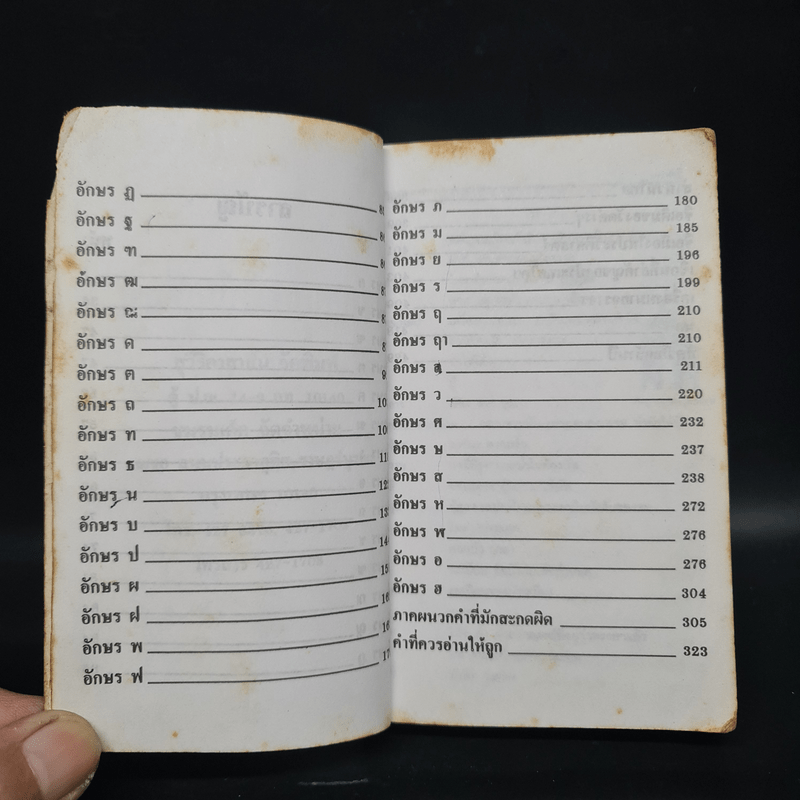 อักษร ฏ
อักษร ฐ
อักษร ฑ
อักษร ฒ
อักษร ณ
อักษร ด
อักษร ต
อักษร ถ
อักษร ท
อักษร ธ
อักษร น
อักษร บ
อักษร ป
อักษร ผ
อักษร ฝ
อักษร พ
อักษร ฟ
อักษร ภ 180
อักษร ม 185
อักษร ย 196
อักษร ร 199
อักษร ฤ 210
อักษร ฤา 210
อักษร ล 211
อักษร ว 220
อักษร ศ 232
อักษร ษ 237
อักษร ส 238
อักษร ห 272
อักษร ฬ 276
อักษร อ 276
อักษร ฮ 304
ภาคผนวกคำที่มักสะกดผิด 305
คำที่ควรอ่านให้ถูก 323